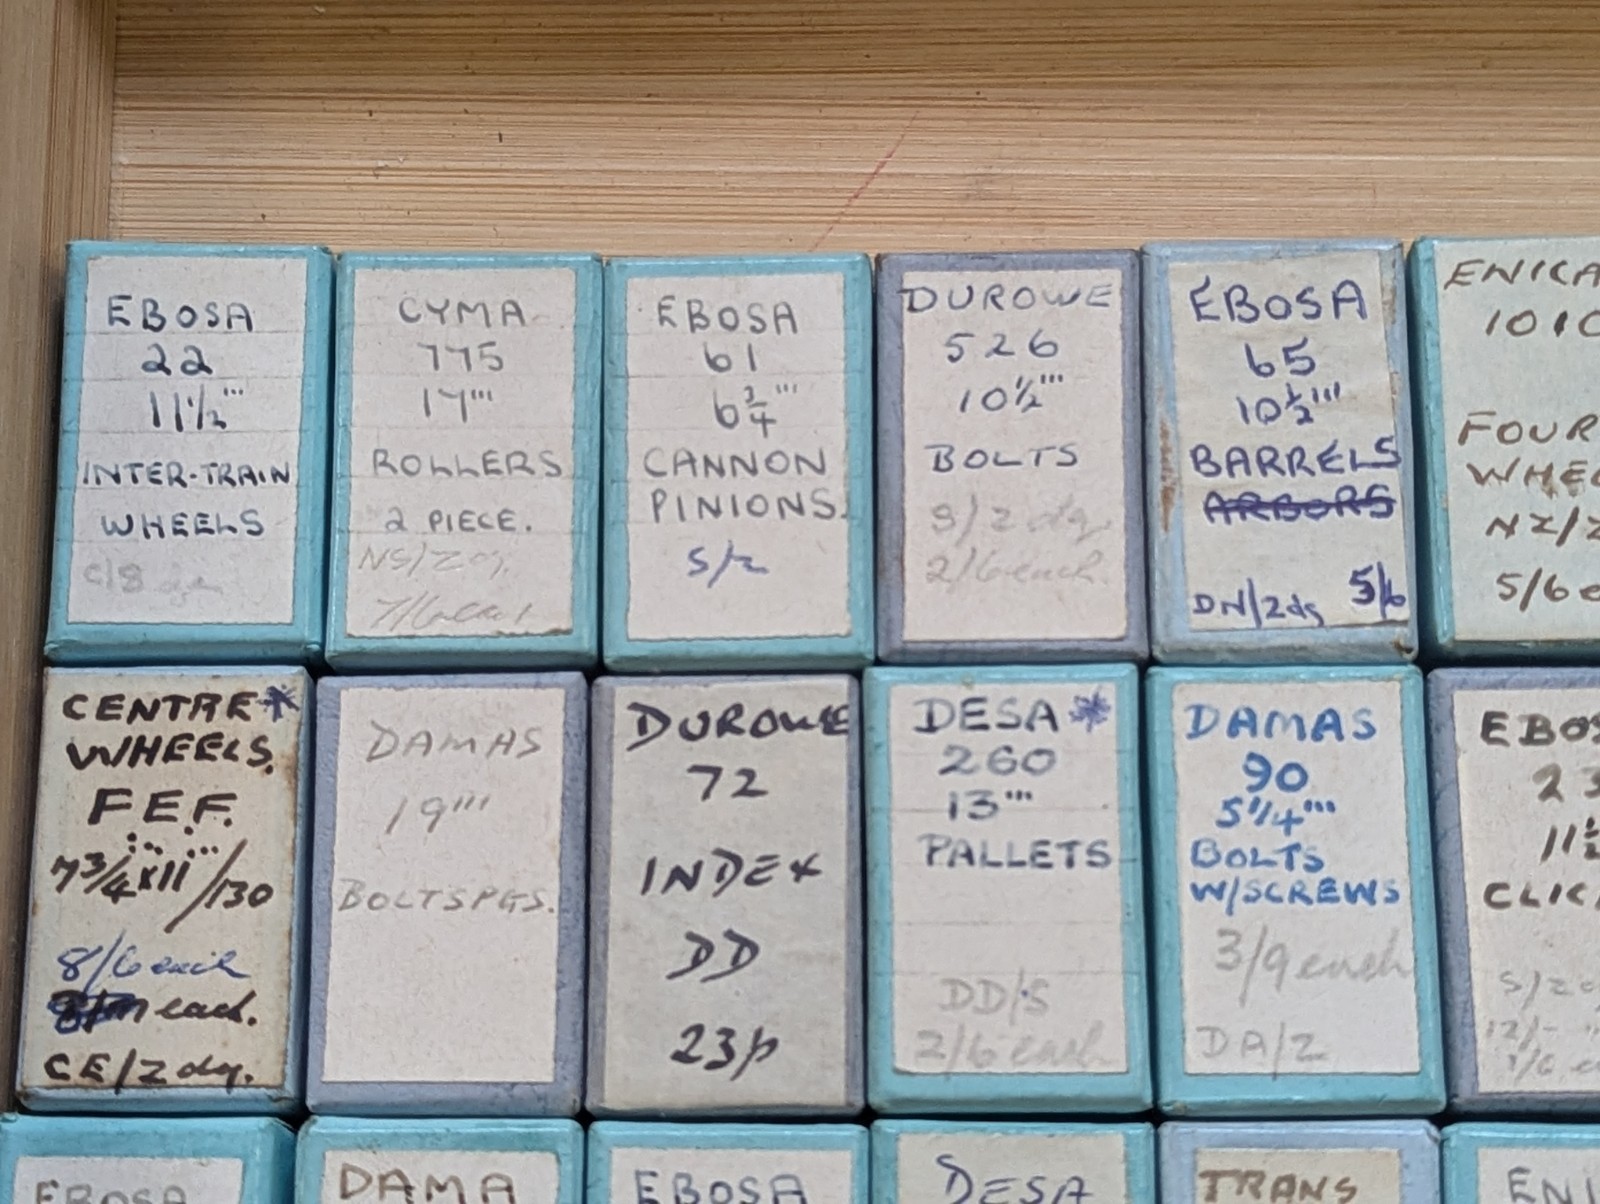 EBOSA
22
11½'''
INTER-TRAIN
WHEELS
CYMA
775
17'''
ROLLERS
2 PIECE.
NS/2 dg.
7/6 each
EBOSA
61
6¾'''
CANNON
PINIONS.
S/2
DUROWE
526
10½'''
BOLTS
S/2 dg.
2/6 each
EBOSA
65
10½'''
BARRELS
ARBORS
DN/2dg 5/6
ENICA
1010
FOUR
WHEE
NZ/2
5/6 e
CENTRE*
WHEELS.
F.E.F.
7¾'''x11'''/130
8/6 each
each.
CE/2 dg.
DAMAS
19'''
BOLTSPGS.
DUROWE
72
INDEX
DD
23p
DESA*
260
13'''
PALLETS
DD/S
2/6 each
DAMAS
90
5¼'''
BOLTS
W/SCREWS
3/9 each
DA/2
EBOS
23
11½
CLIC
S/2
12/- "
1/6 e
EBOSA
DAMA
EBOSA
DESA
TRANS
ENI